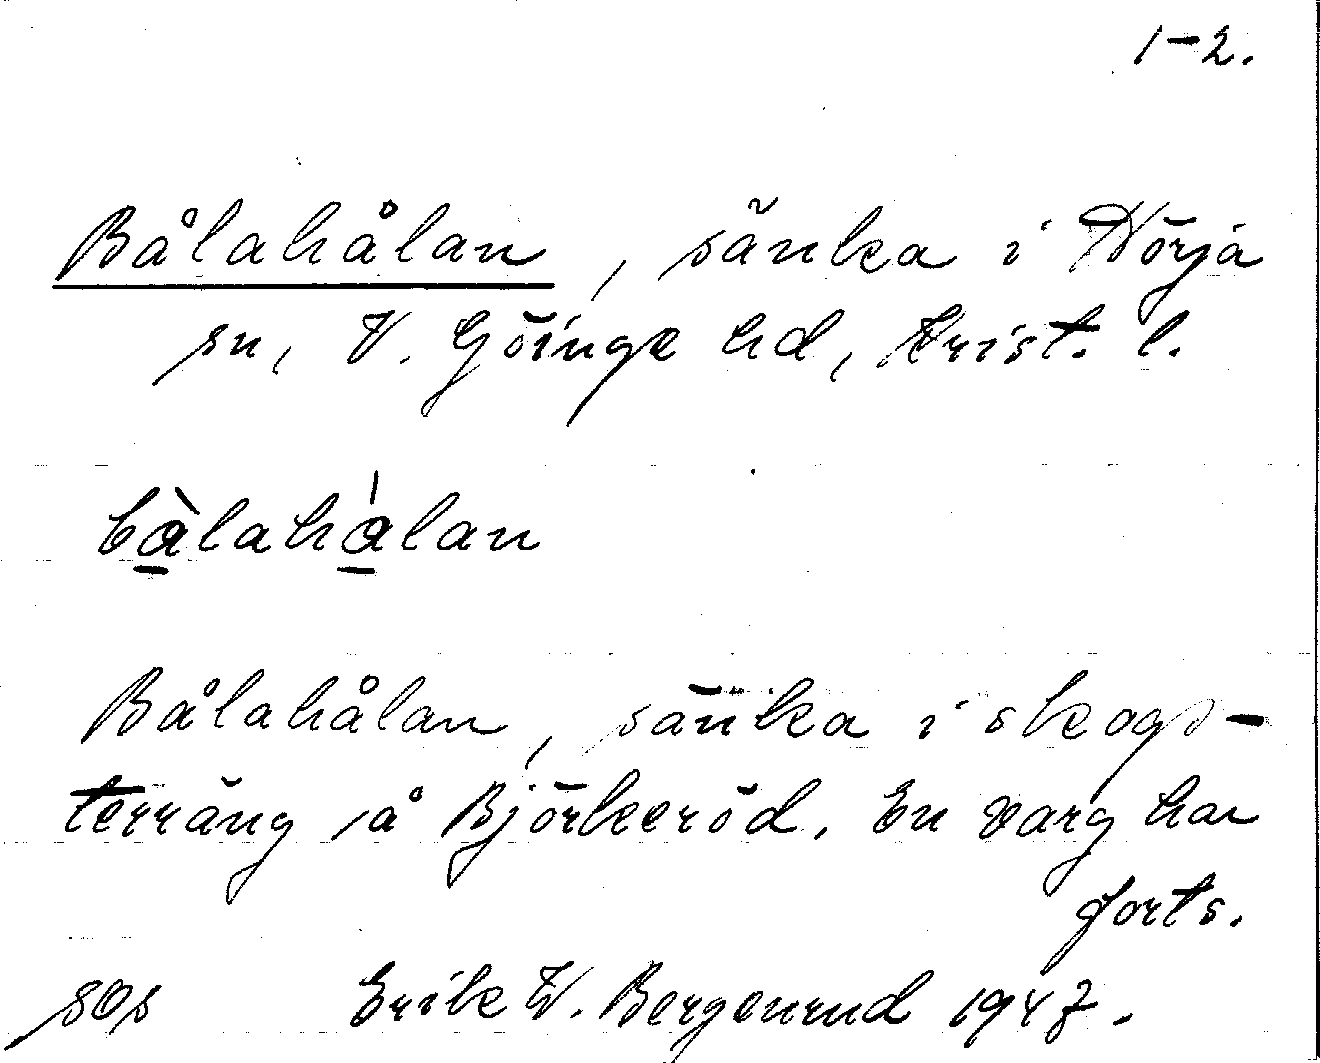 1-2.
Bålahålan, sänka i Nörja
sn, V. Göinge hd, Krist. l.
bàlahálan
Bålahålan, sänka i skogs-
terräng å Björkeröd. En varg har
forts.
Erik W. Bergenrud 1947.